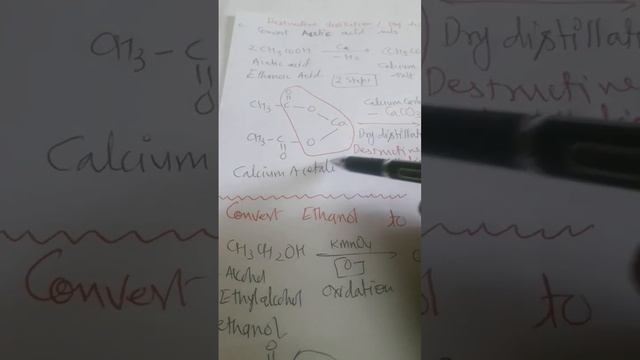 Destructive distillation / Dry
Convert Acetic acid into
2 CH3COOH Ca → (CH3CO
- H2
Acetic acid Calcium
Ethanoic Acid 2 Steps salt
O
CH3 - C - O
Calcium Carb
- CaCO3
Ca
Dry distillat
CH3 - C - O
O
Destructive
Calcium Acetate
Convert Ethanol to
CH3CH2OH KMnO4 →
[O]
Alcohol
Ethylalcohol oxidation
ethanol
O
CH3 - C
O
Calcium
Convert
Dry distillat
Destructine
to